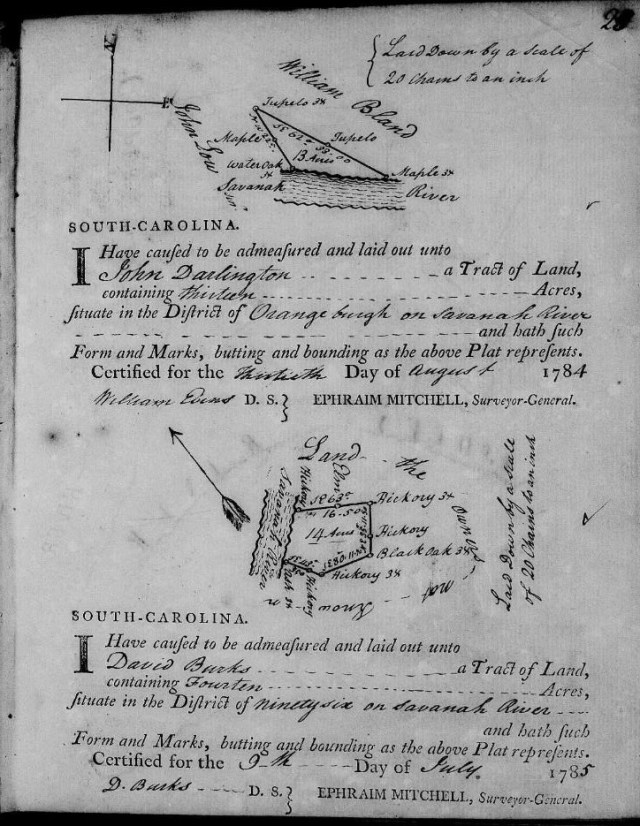 Laid Down by a scale of
20 Chains to an inch
N
E
William Bland
John Low
Tupelo 3x
Tupelo
Maple
Maple 3x
13 Acres
Water Oak
3x
Savanah River
SOUTH-CAROLINA.
I Have cauſed to be admeaſured and laid out unto
John Darlington a Tract of Land,
containing thirteen Acres,
ſituate in the Diſtrict of Orangeburgh on Savanah River
and hath ſuch
Form and Marks, butting and bounding as the above Plat repreſents.
Certified for the thirtieth Day of August 1784
William Evins D. S. EPHRAIM MITCHELL, Surveyor-General.
Land the
owner not Known
Laid Down by a scale
of 20 Chains to an inch
Savanah River
Hickory
Elm
Hickory 3x
16-50
14 Acres
Hickory
Black Oak 3x
Hickory 3x
Hickory
Ash 3x
SOUTH-CAROLINA.
I Have cauſed to be admeaſured and laid out unto
David Burks a Tract of Land,
containing Fourten Acres,
ſituate in the Diſtrict of Ninetysix on Savanah River
and hath ſuch
Form and Marks, butting and bounding as the above Plat repreſents.
Certified for the 9th Day of July 1785
D. Burks D. S. EPHRAIM MITCHELL, Surveyor-General.